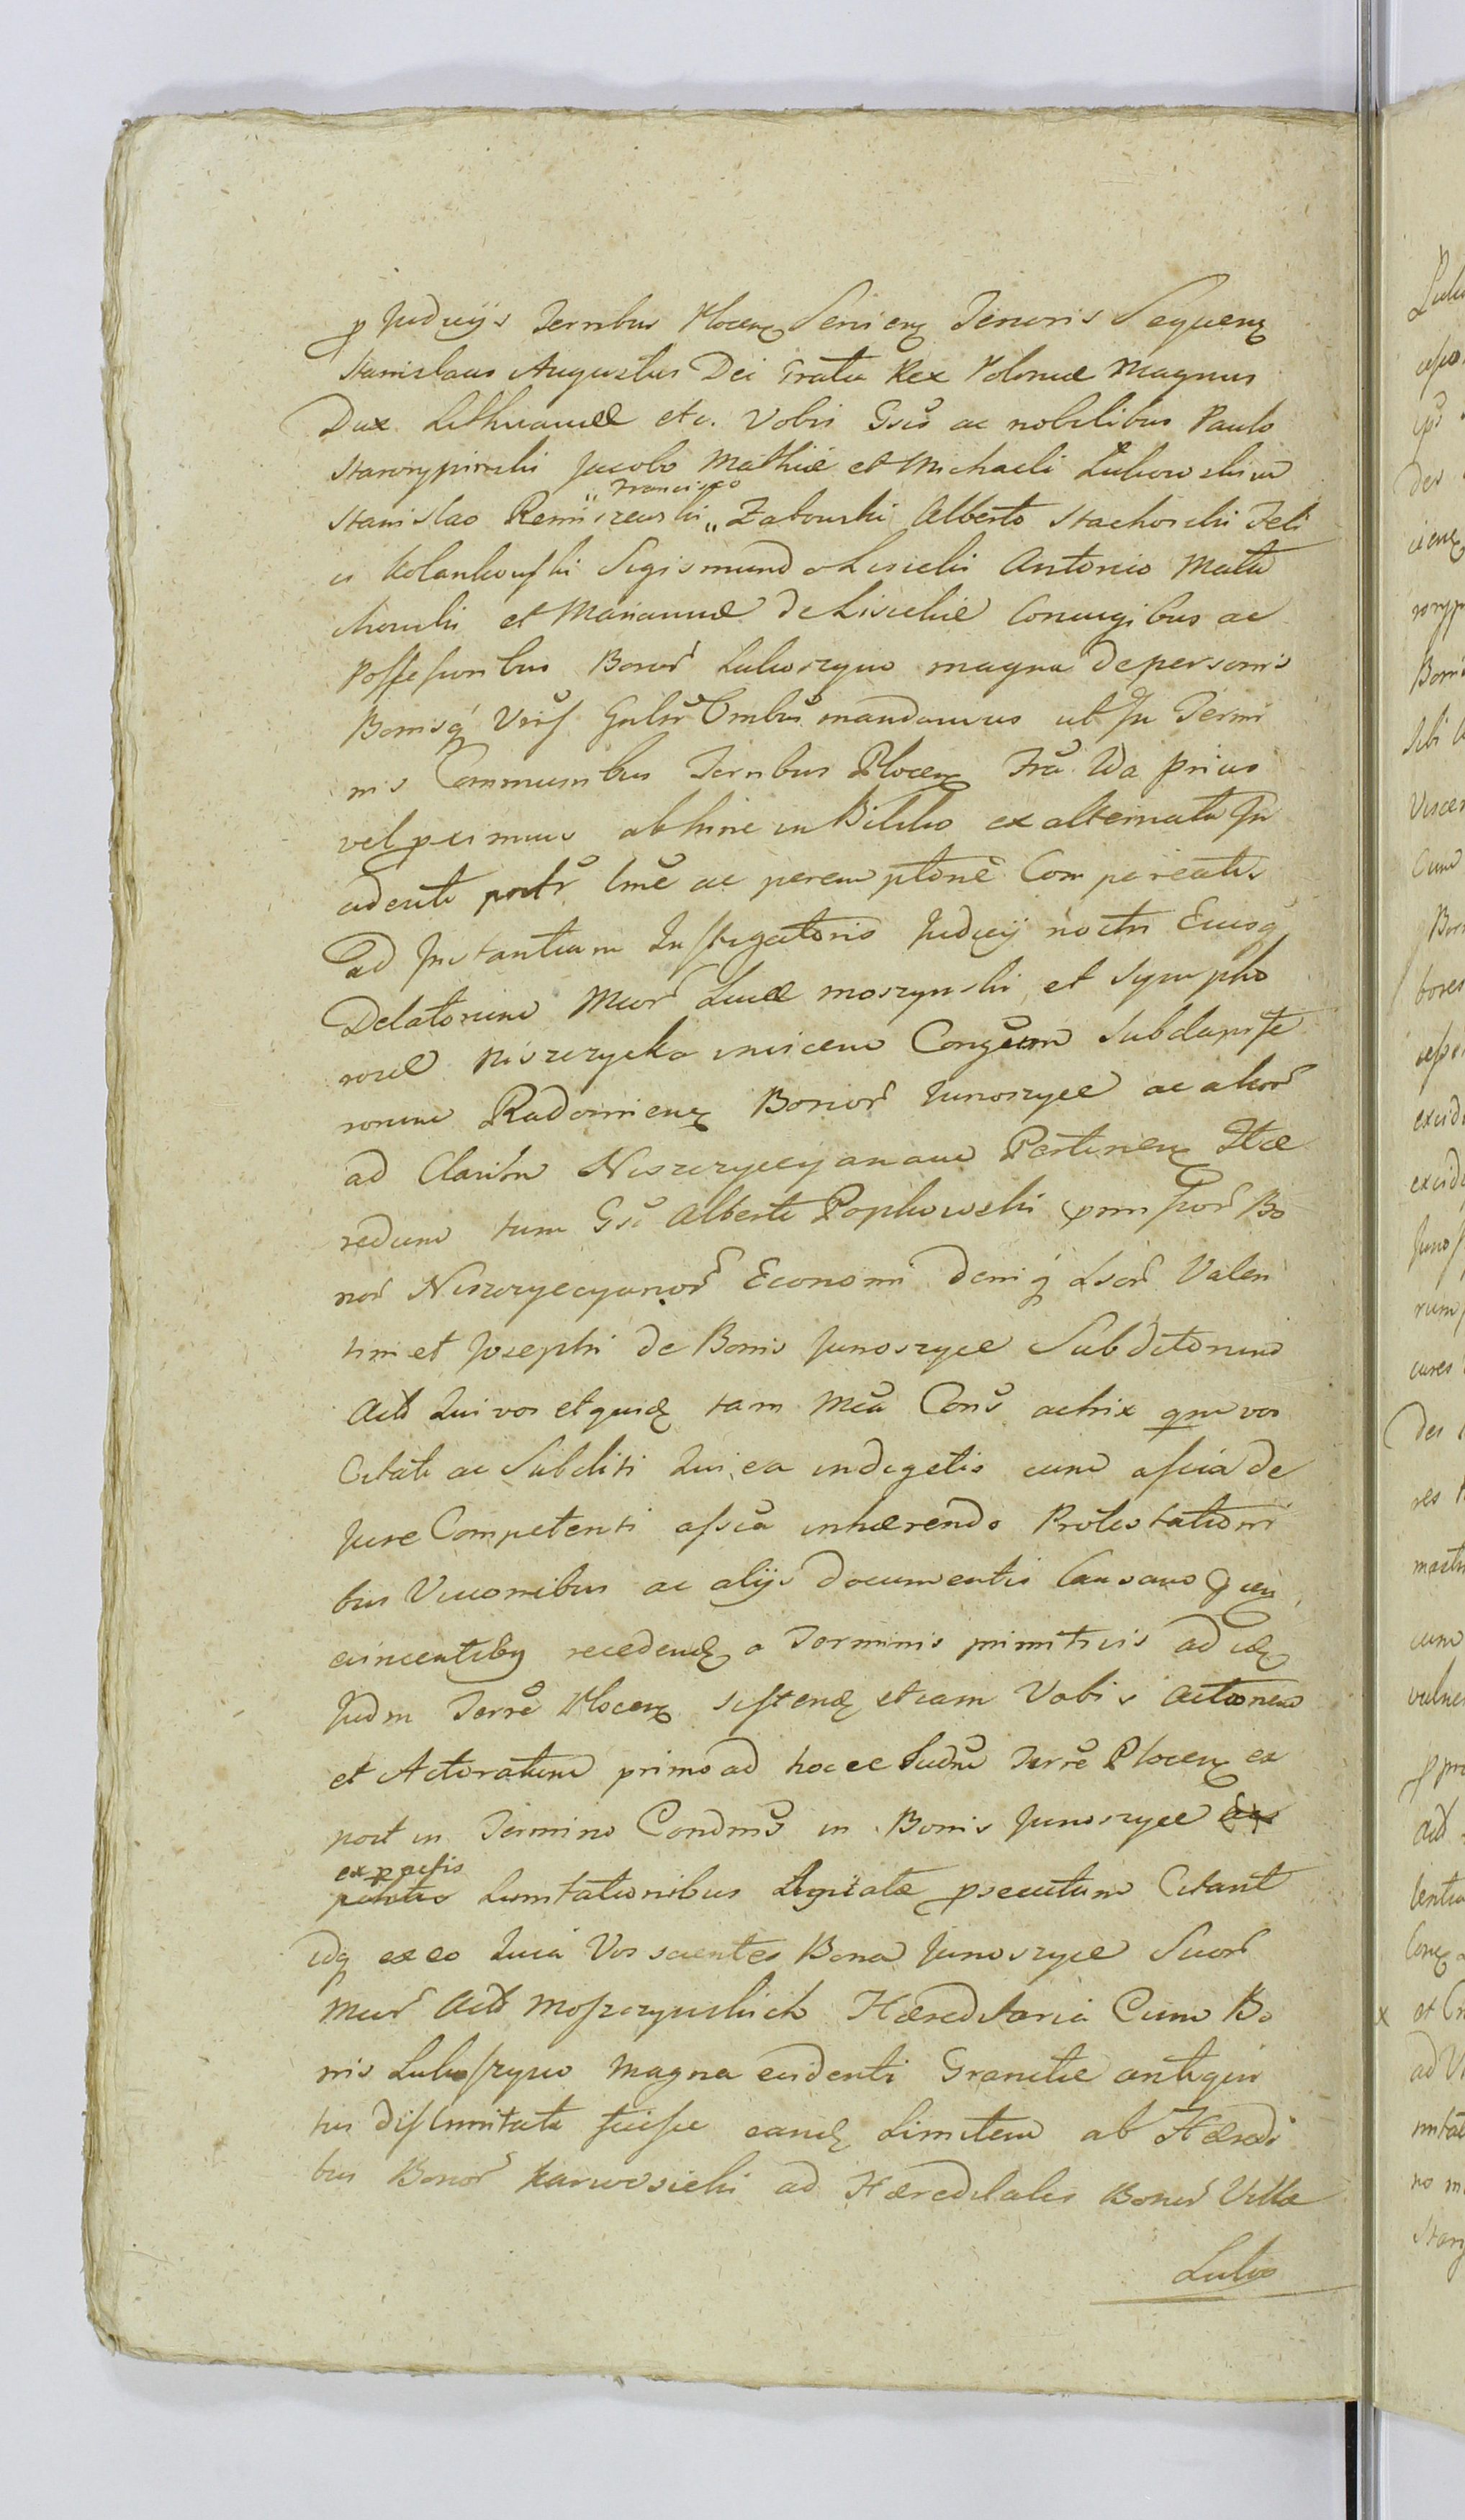 p Judicijs Terribus Plocen Servien Tenoris Sequen
Stanislaus Augustus Dei Gratia Rex Poloniae Magnus
Dux Lithuaniae etc. Vobis Gsis ac nobilibus Paulo
Starorypinski Jacobo Mathiae et Michaeli Lukowskim
Francisco
Stanislao Remiszewski „ Zabowski Alberto Stachorski Feli
ci Kolankowski Sigismundo Lisicki Antonio Mala
chowski et Mariannae de Lisickie Conjugibus ac
Possessoribus Bonor Lukoszyno magna de personis
Bonisq Vris Gnlir Ombus mandamus ut In Termi
nis Communibus Terribus Plocen Fra 2da prius
vel proximius abhinc in Bilsko ex alternata In
cidenti poster lme ac peremptorie Compareatis
ad Instantiam Instigatoris Judicij nostri Eiusq
Delatorum Mcor Lucae Moszynski et Sympho
rosae Niszczycka invicem Congum Subdapife
rorum Radomien Bonor Junoszyce ac alior
ad Clavem Niszczycyanam Pertinen Hae
redum tum Gsi Alberti Popkowski pmissor Bo
nor Niszczycyanor Economi deniq Lsor Valen
tini et Josephi de Bonis Junoszyce Subditorum
Actt Qui vos et quid tam Mca Cons actrix qm vos
Citati ac Subditi Qui ea indigetis cum assia de
Jure Competenti assia inhaerendo Protestationi
bus Visionibus ac alijs documentis Causam
evincentiby recedend a Terminis primitivis ad id
Judm Terre Plocen sistend etiam Vobis Actionem
et Actoratum primo ad hocce Judm Terre Plocen ex
post in Termino Condnis in Bonis Junoszyce
ex pactis
Limitationibus psecutum Citant
idq ex eo Quia Vos scientes Bona Junoszyce Suor
Mcor Actt Moszczynskich Haereditaria Cum Bo
nis Lukoszyno magna evidenti Granitie antiqui
tus dislimitata fuisse eand Limitem ab Haeredi
bus Bonor Karwosieki ad Haereditates Bonor Villae
Luko